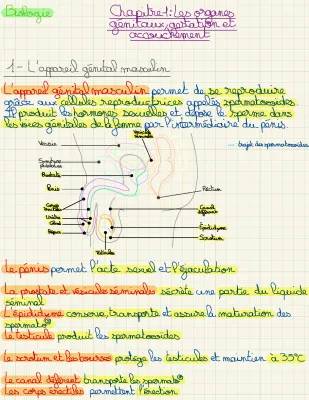 Biologie
Chapitre 1 : Les organes
génitaux, gestation et
accouchement
1 - L'appareil génital masculin
L'appareil génital masculin permet de se reproduire
grâce aux cellules reproductrices appelés spermatozoïdes.
Il produit les hormones sexuelles et dépose le sperme dans
les voies génitales de la femme par l'intermédiaire du pénis.
Vessie
trajet des spermatozoïdes
Symphise
Prostate
Rectum
Pénis
Corps
Canal
déférent
Urètre
Gland
Epididyme
Scrotum
Testicule
Le pénis permet l'acte sexuel et l'éjaculation
La prostate et vésicules séminales sécrète une partie du liquide
séminal
L'épididyme conserve, transporte et assure la maturation des
spermato
Le testicule produit les spermatozoïdes
Le scrotum et les bourses protège les testicules et maintien à 35°C
Le canal déférent transporte les spermato
Les corps érectiles permettent l'érection